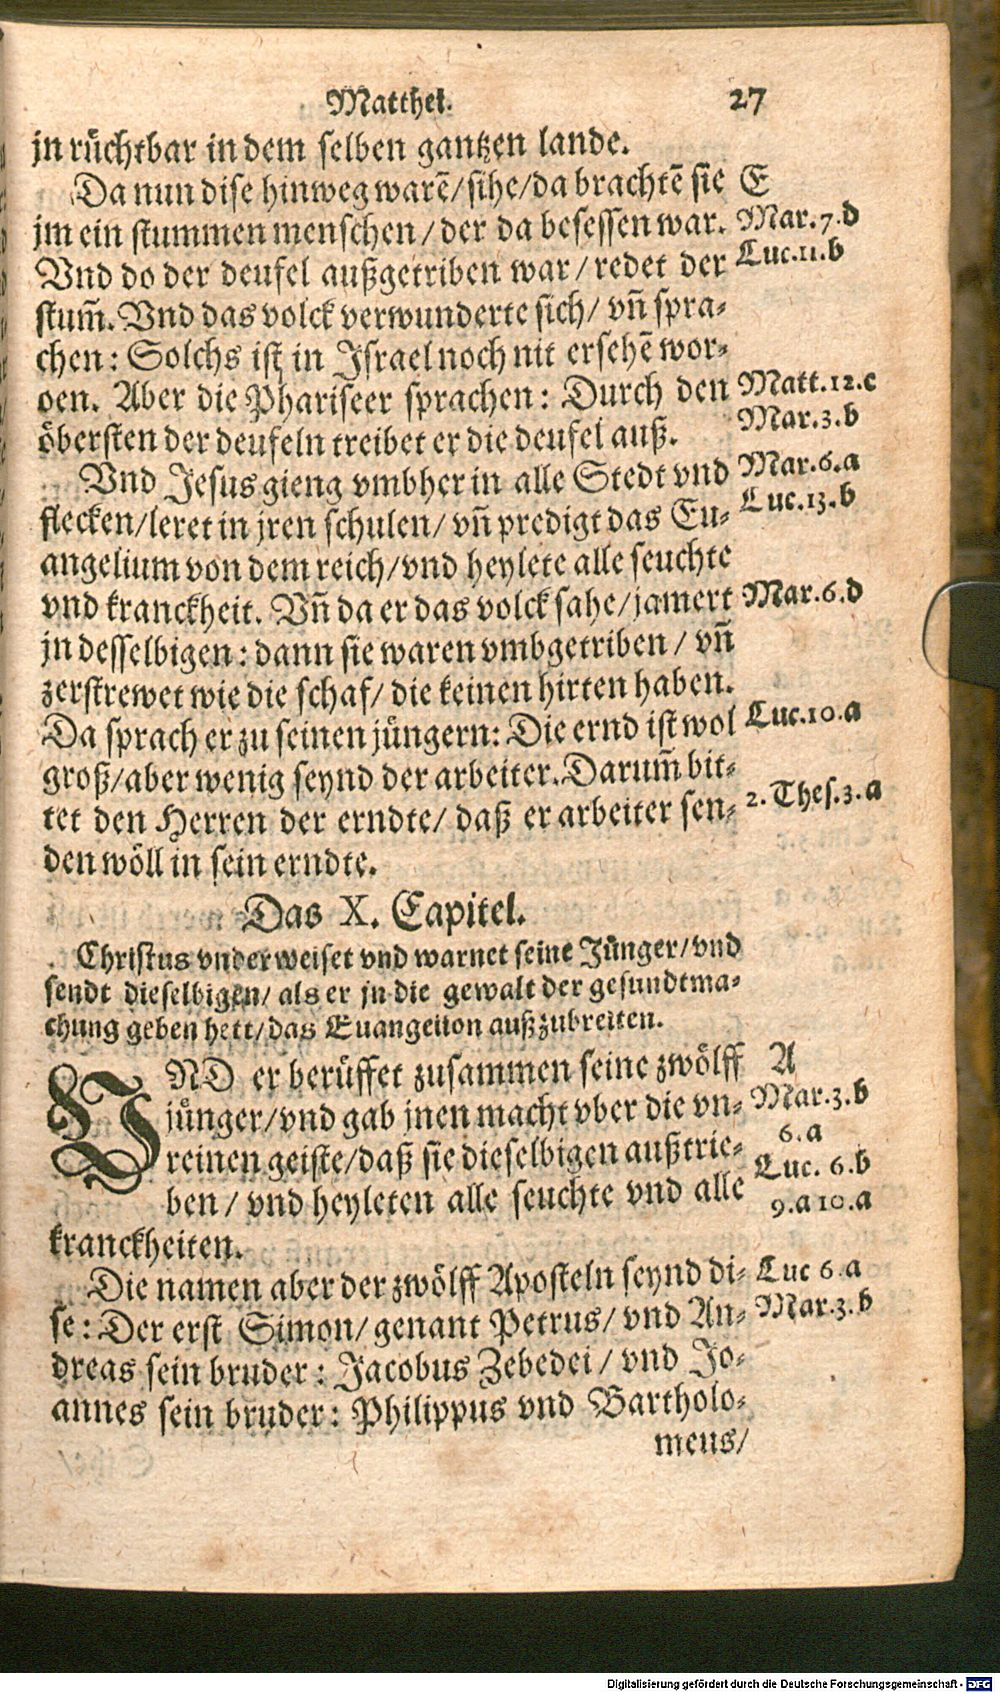 Matthei. 27
jn růchtbar in dem selben gantzen lande.
Da nun dise hinweg warē/sihe/da brachtē sie E
jm ein stummen menschen/der da besessen war. Mar.7.d
Vnd do der deufel außgetriben war/redet der Luc.11.b
stum̄. Vnd das volck verwunderte sich/ vn̄ spra-
chen: Solchs ist in Israel noch nit ersehē wor-
den. Aber die Phariseer sprachen: Durch den Matt.12.c
öbersten der deufeln treibet er die deufel auß. Mar.3.b
Vnd Jesus gieng vmbher in alle Stedt vnd Mar.6.a
flecken/leret in jren schulen/ vn̄ predigt das Eu- Luc.13.b
angelium von dem reich/vnd heylete alle seuchte
vnd kranckheit. Vn̄ da er das volck sahe/jamert Mar.6.d
jn desselbigen: dann sie waren vmbgetriben / vn̄
zerstrewet wie die schaf/ die keinen hirten haben.
Da sprach er zu seinen jůngern: Die ernd ist wol Luc.10.a
groß/aber wenig seynd der arbeiter. Darum̄ bit-
tet den Herren der erndte/ daß er arbeiter sen- 2. Thes.3.a
den wöll in sein erndte.
Das X. Capitel.
Christus vnderweiset vnd warnet seine Jůnger/vnd
sendt dieselbigen/ als er jn die gewalt der gesundtma-
chung geben hett/das Euangelion außzubreiten.
VND er berůffet zusammen seine zwölff A
jůnger/vnd gab jnen macht vber die vn- Mar.3.b
6.a
reinen geiste/daß sie dieselbigen außtrie- Luc. 6.b
ben/ vnd heyleten alle seuchte vnd alle 9.a 10.a
kranckheiten.
Die namen aber der zwölff Aposteln seynd di- Luc 6.a
se: Der erst Simon/ genant Petrus/ vnd An- Mar.3.b
dreas sein bruder: Jacobus Zebedei/ vnd Jo-
annes sein bruder: Philippus vnd Bartholo-
meus/
Digitalisierung gefördert durch die Deutsche Forschungsgemeinschaft - DFG